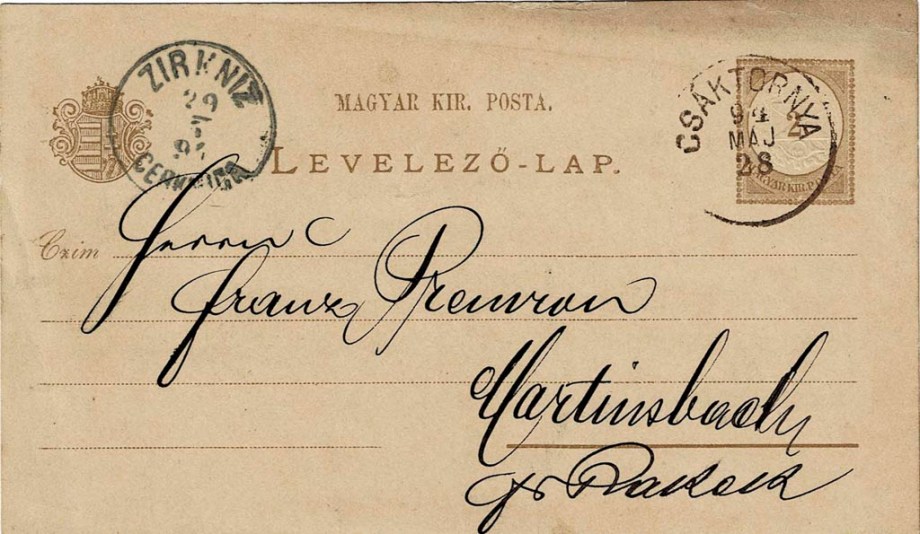 ZIRKNIZ
29
5
94
CERKNICA
MAGYAR KIR. POSTA.
LEVELEZŐ-LAP.
CSÁKTORNYA
94
MAJ
28
2
MAGYAR KIR. POSTA
Czim
Herrn
Franz
Martinsbach
Rakek